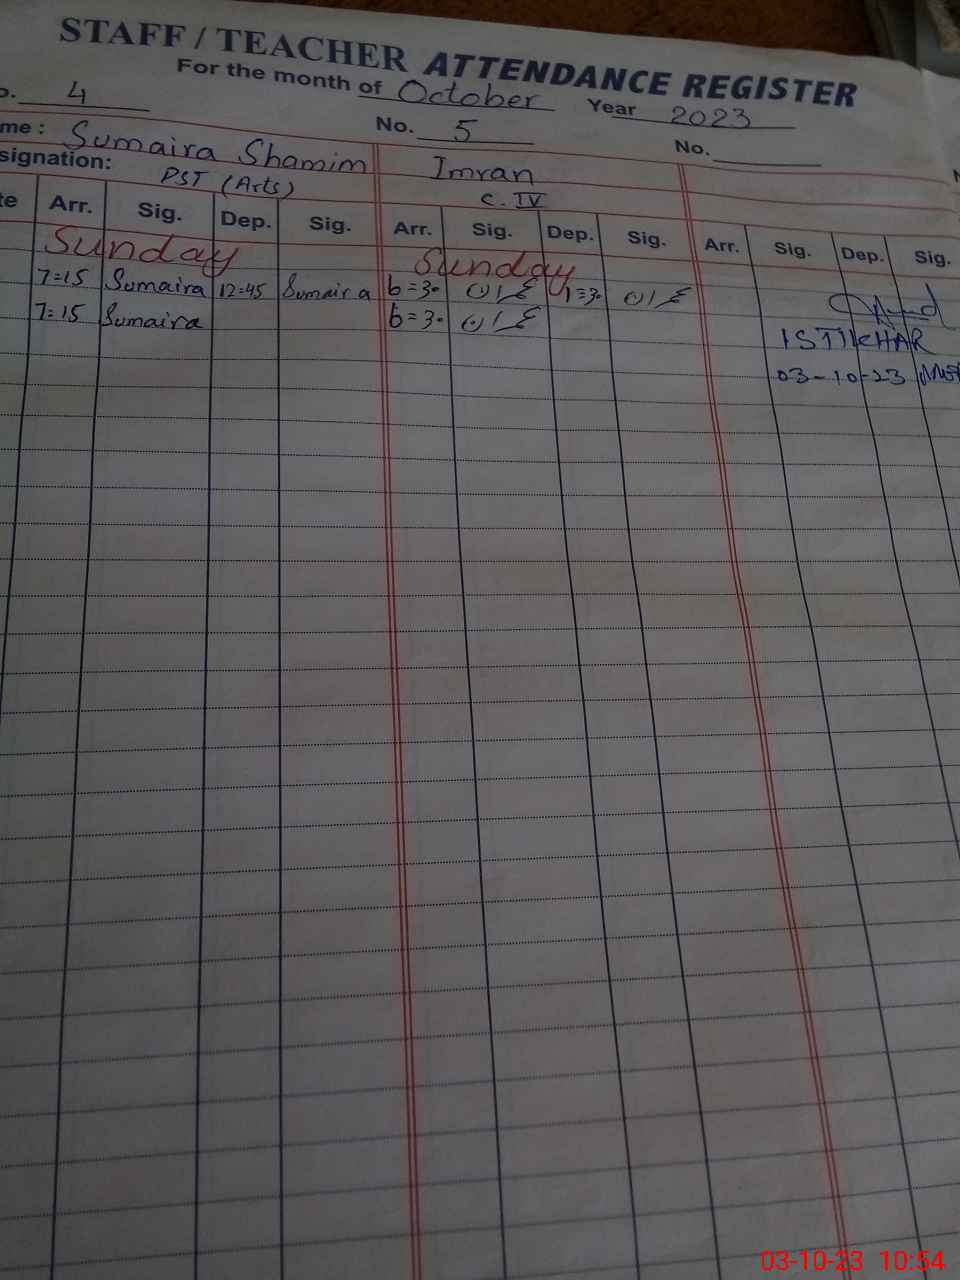 STAFF / TEACHER ATTENDANCE REGISTER
For the month of October Year 2023
o. 4 No. 5 No.
me : Sumaira Shamim Imran
signation: PST (Arts) C. IV
te Arr. Sig. Dep. Sig. Arr. Sig. Dep. Sig. Arr. Sig. Dep. Sig.
Sunday Sunday
7=15 Sumaira 12=45 Sumaira 6=30 عمران 1=30 عمران
7=15 Sumaira 6=30 عمران
ISTIKHAR
03-10-23
03-10-23 10:54